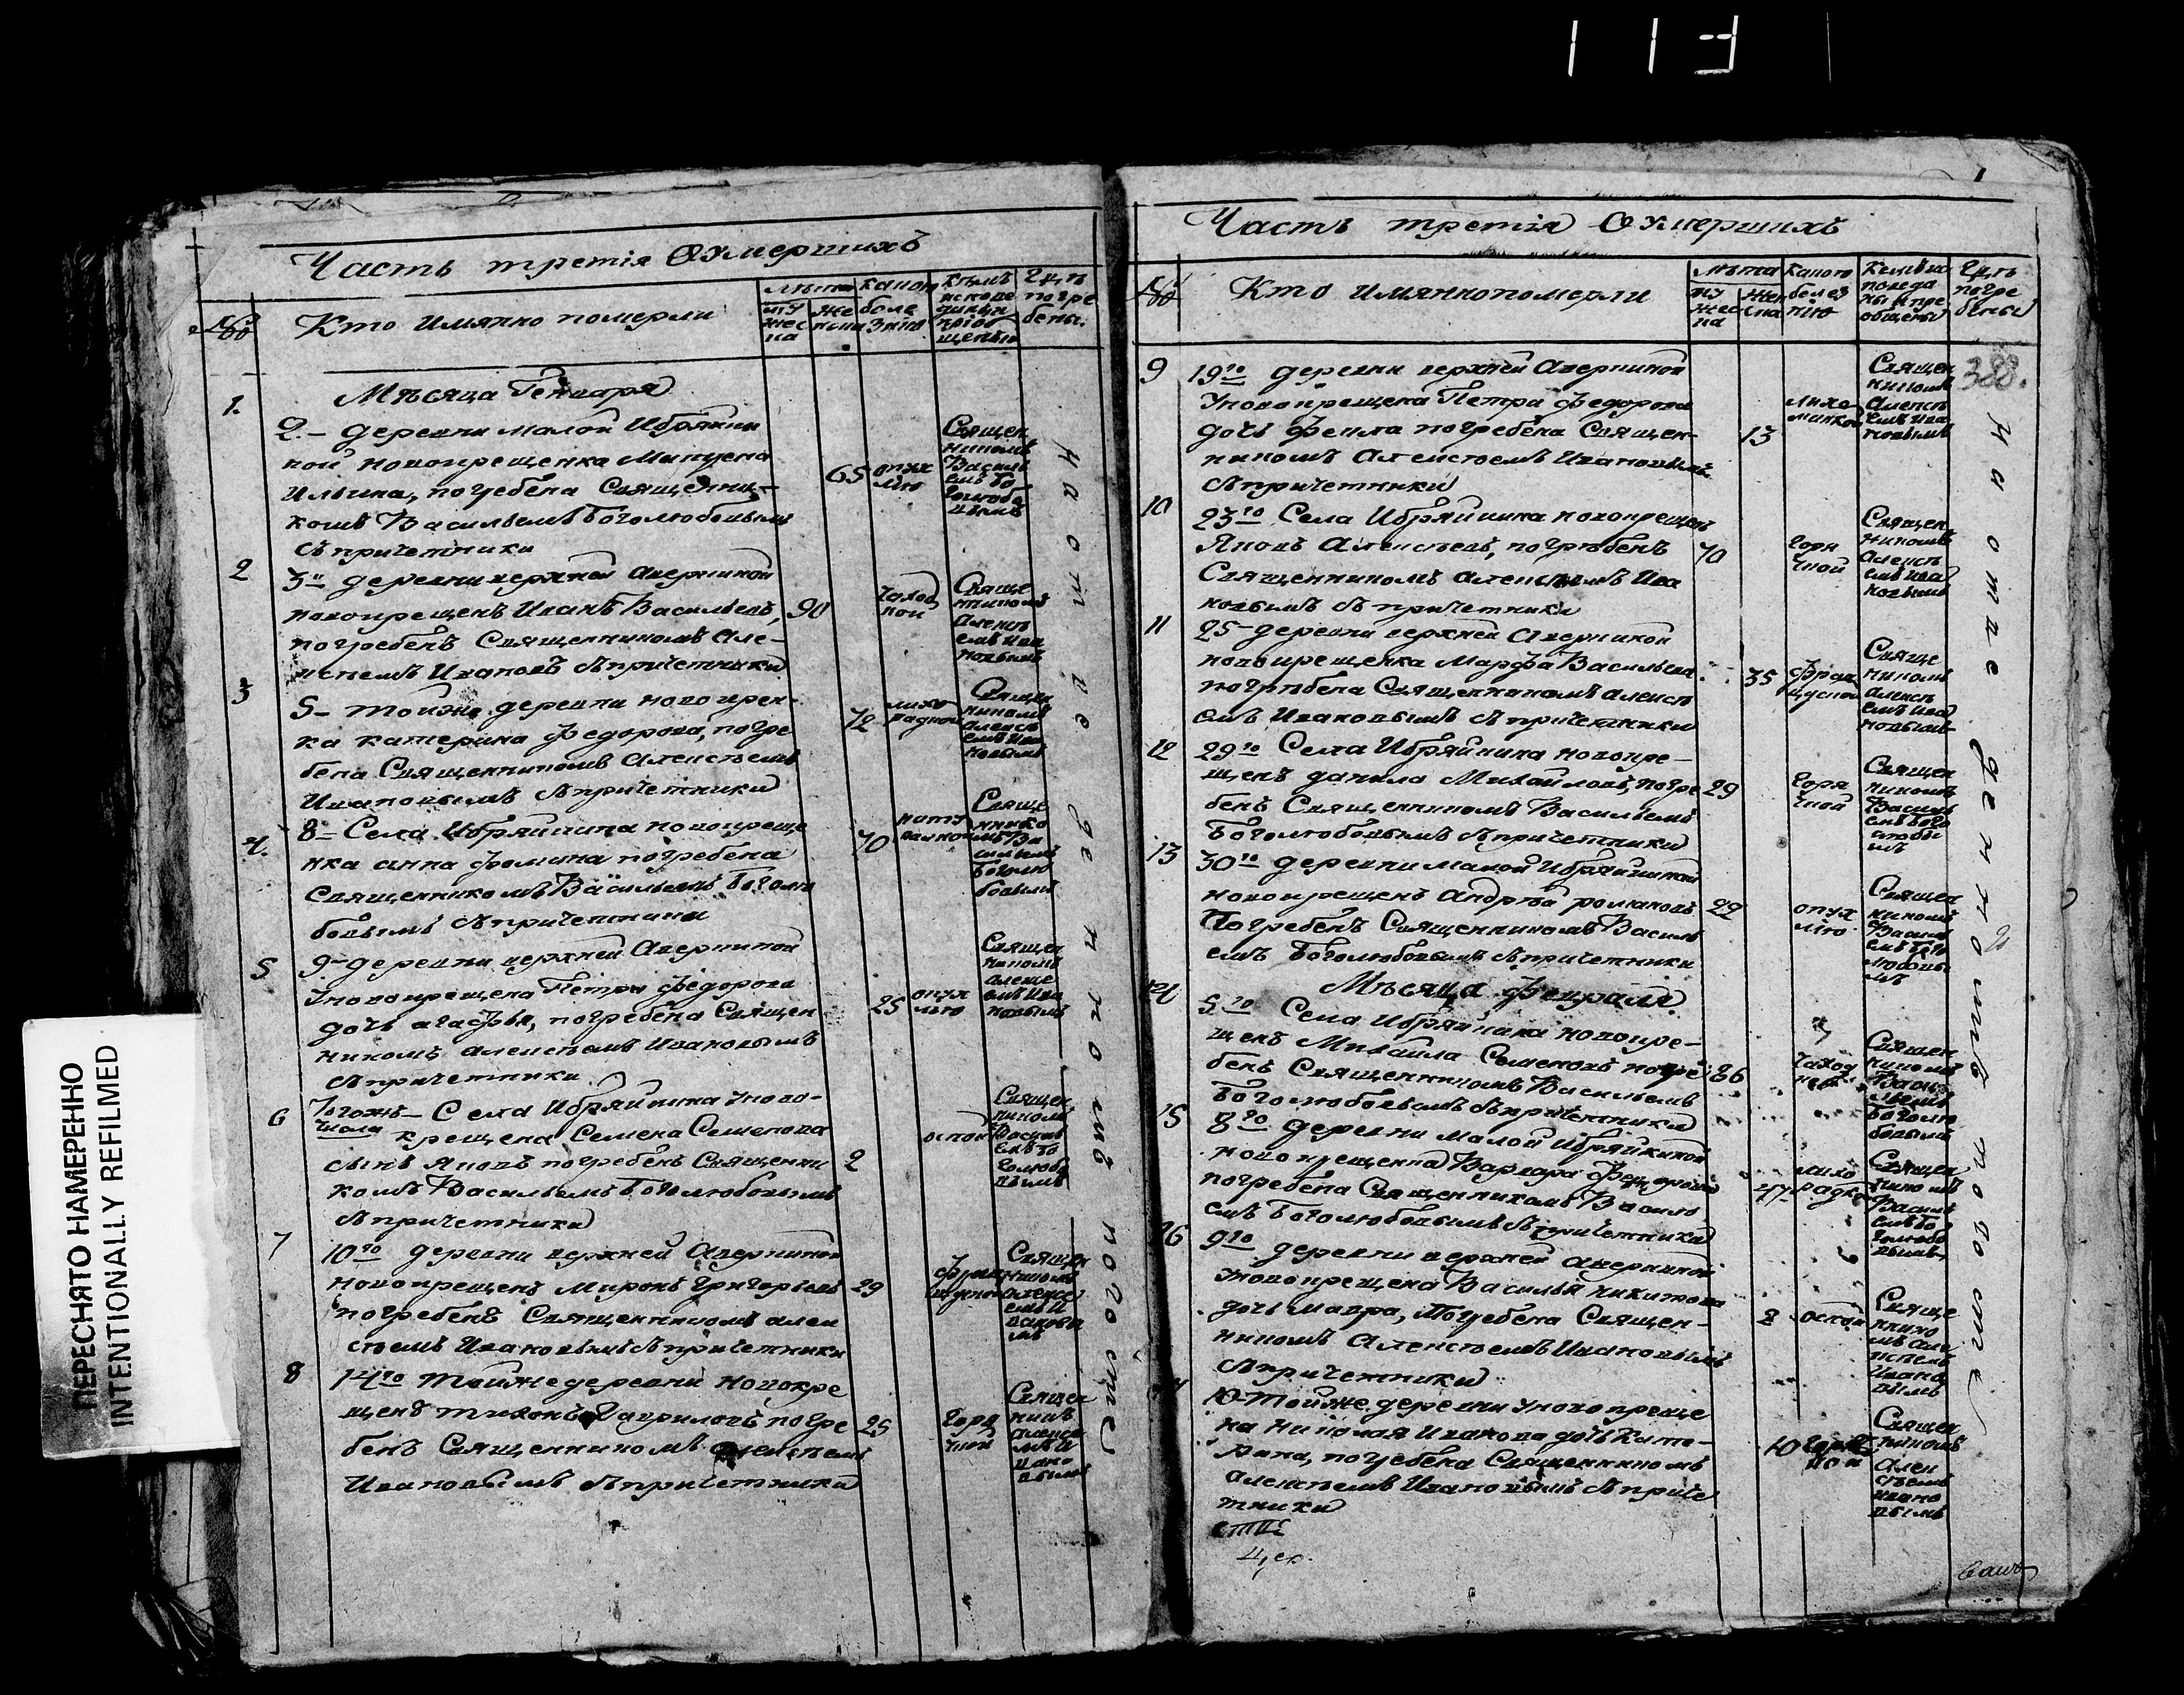 113
Часть третія О умершихъ
№
Кто имянно померли
Лѣта
му
жес
ка
же
нска
какою
боле
знію
Кѣмъ
испове
даны и
пріоб
щены
Гдѣ
погре
бены.
Мѣсяца Генваря
1.
2.– деревни малой Ибрякин
ской новокрещенка
Ильина, погребена Священни-
комъ Васильемъ Боголюбовымъ
съ причетники
65
опух
лію
Священ
никомъ
Василь
емъ Бо
голюбо
вымъ
2
3го деревни верхней Аверкиной
новокрещенъ Иванъ Васильевъ,
погребенъ Священникомъ Але-
ксѣемъ Ивановъ съ причетники
90
Чахот
кой
Священ
никомъ
Алексѣ
емъ Ива
новымъ
3
5– тойже деревни новокрещен-
ка катерина Федорова, погре
бена Священникомъ Алексѣемъ
Ивановымъ съ причетники
72
лихо
радкой
Священ
никомъ
Алексѣ
емъ Ива
новымъ
4.
8– Села Ибряйкина новокреще
нка анна Фомина погребена
Священникомъ Васильемъ Боголю
бовымъ съ причетники
70
Священ
никомъ Ва
сильемъ
Боголю
бовымъ
5
9– деревни верхней Аверкиной
у новокрещена Петра Федорова
дочь агафья, погребена Священ
никомъ алексѣемъ Ивановымъ
съ причетники
25
опух
лію
Священ
никомъ
алексѣ
емъ Ива
новымъ
6
Тогожъ
числа
– Села Ибряйкина у ново-
крещена Семена Семенова
сынъ Яковъ погребенъ Священни
комъ Васильемъ Боголюбовымъ
съ причетники
2
оспой
Священ
никомъ
Василь
емъ Бо
голюбо
вымъ
7
10го деревни верхней Аверкиной
новокрещенъ Миронъ Григорьевъ
погребенъ Священникомъ алек
сѣемъ Ивановымъ съ причетники
29
Священ
никомъ
алексѣ
емъ И
вановы
мъ
8
14го тойже деревни новокре
щенъ тихонъ Гавриловъ погре
бенъ Священникомъ алексѣемъ
Ивановымъ съ причетники
25
Горя
чкой
Священ
никомъ
алексѣе
мъ И
вано
вымъ
на отведенномъ погостѣ
1
Часть третія О умершихъ
№
Кто имянно померли
Лѣта
му
жес
ка
жен
ска
какою
болез
нію
Кемъ ис
поведа
ны и прі
общены
Гдѣ
погре
бены
388.
9
19го деревни верхней Аверкиной
у новокрещена Петра Федорова
дочь Фекла погребена Священ-
никомъ Алексѣемъ Ивановымъ
съ причетники
13
Лихо
манкою
Священ
никомъ
Алексѣ
емъ Ива
новымъ
10
23го Села Ибряйкина новокрещенъ
Яковъ Алексѣевъ, погребенъ
Священникомъ Алексѣемъ Ива
новымъ съ причетники
70
горя
чкой
Священ
никомъ
Алексѣ
емъ Ива
новымъ
11
25– деревни верхней Аверкиной
новокрещенка Марфа Васильева
погребена Священникомъ алексѣ
емъ Ивановымъ съ причетники
35
Священ
никомъ
алексѣ
емъ Ива
новымъ
12
29го Села Ибряйкина новокре-
щенъ данила Михайловъ, погре
бенъ Священникомъ Васильемъ
Боголюбовымъ съ причетники
29
Горя
чкой
Священ
никомъ
Василь
емъ Бого
любовы
мъ
13
30го деревни малой Ибряйкиной
новокрещенъ Андрѣй романовъ
Погребенъ Священникомъ Василь
емъ Боголюбовымъ съ причетники
22
опух
лію
Священ
никомъ
Василь
емъ Бого
любовы
мъ
Мѣсяца Февраля.
14
5го Села Ибряйкина новокре-
щенъ Михайла Семеновъ погре
бенъ Священникомъ Васильемъ
Боголюбовымъ съ причетники
86
Чахот
кой
Священ
никомъ
Васи
льемъ
Боголю
бовымъ
15
8го деревни малой Ибряйкиной
новокрещенка Варвара Федорова
погребена Священникомъ Василь
емъ Боголюбовымъ съ причетники
лихо
радкой
Священ
никомъ
Василь
емъ Бо
голюбо
вымъ
16
9го деревни верхней Аверкиной
у новокрещена Василья никитина
дочь мавра, Погребена Священ-
никомъ Алексѣемъ Ивановымъ
съ причетники
2
оспой
Священ
нико
мъ Але
ксѣемъ
Ивано
вымъ
10– Тойже деревни у новокреще
на николая Иванова дочь Кате-
рина, погребена Священникомъ
алексѣемъ Ивановымъ съ приче
тники
10
Горяч
кой
Священ
никомъ
Алек
сѣемъ
Ивано
вымъ
на отведенномъ погостѣ
ПЕРЕСНЯТО НАМЕРЕННО
INTENTIONALLY REFILMED